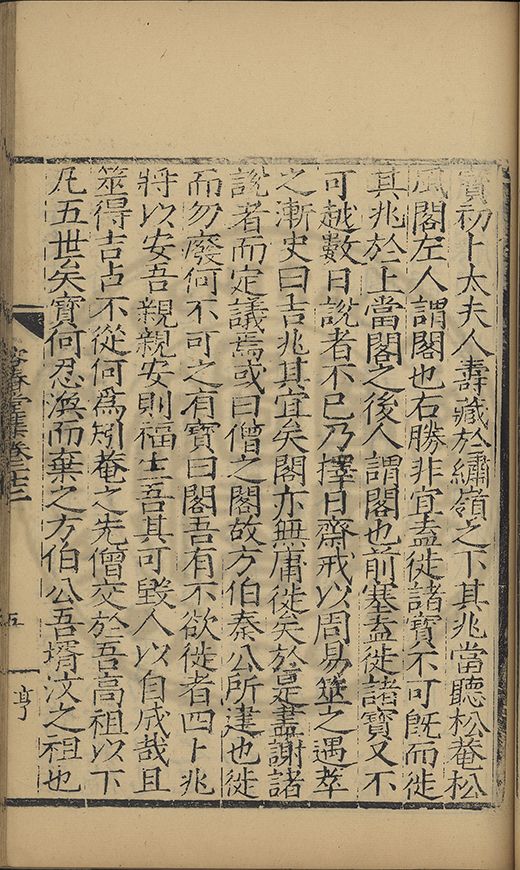 寳初卜太夫人壽藏於繡嶺之下其兆當聽松菴松
風閣左人謂閣也右勝非宜盍徙諸寳不可旣而徙
其兆於上當閣之後人謂閣也前塞盍徙諸寳又不
可越數日說者不已乃擇日齋戒以周易筮之遇萃
之漸史曰吉兆其宜矣閣亦無庸徙矣於是盡謝諸
說者而定議焉或曰僧之閣故方伯秦公所建也徙
而勿廢何不可之有寳曰閣吾有不欲徙者四卜兆
將以安吾親親安則福生吾其可毀人以自成哉且
筮得吉占不從何爲矧菴之先僧交於吾高祖以下
凡五世矣寳何忍渙而棄之方伯公吾壻汶之祖也
容春堂集卷三
五
亨